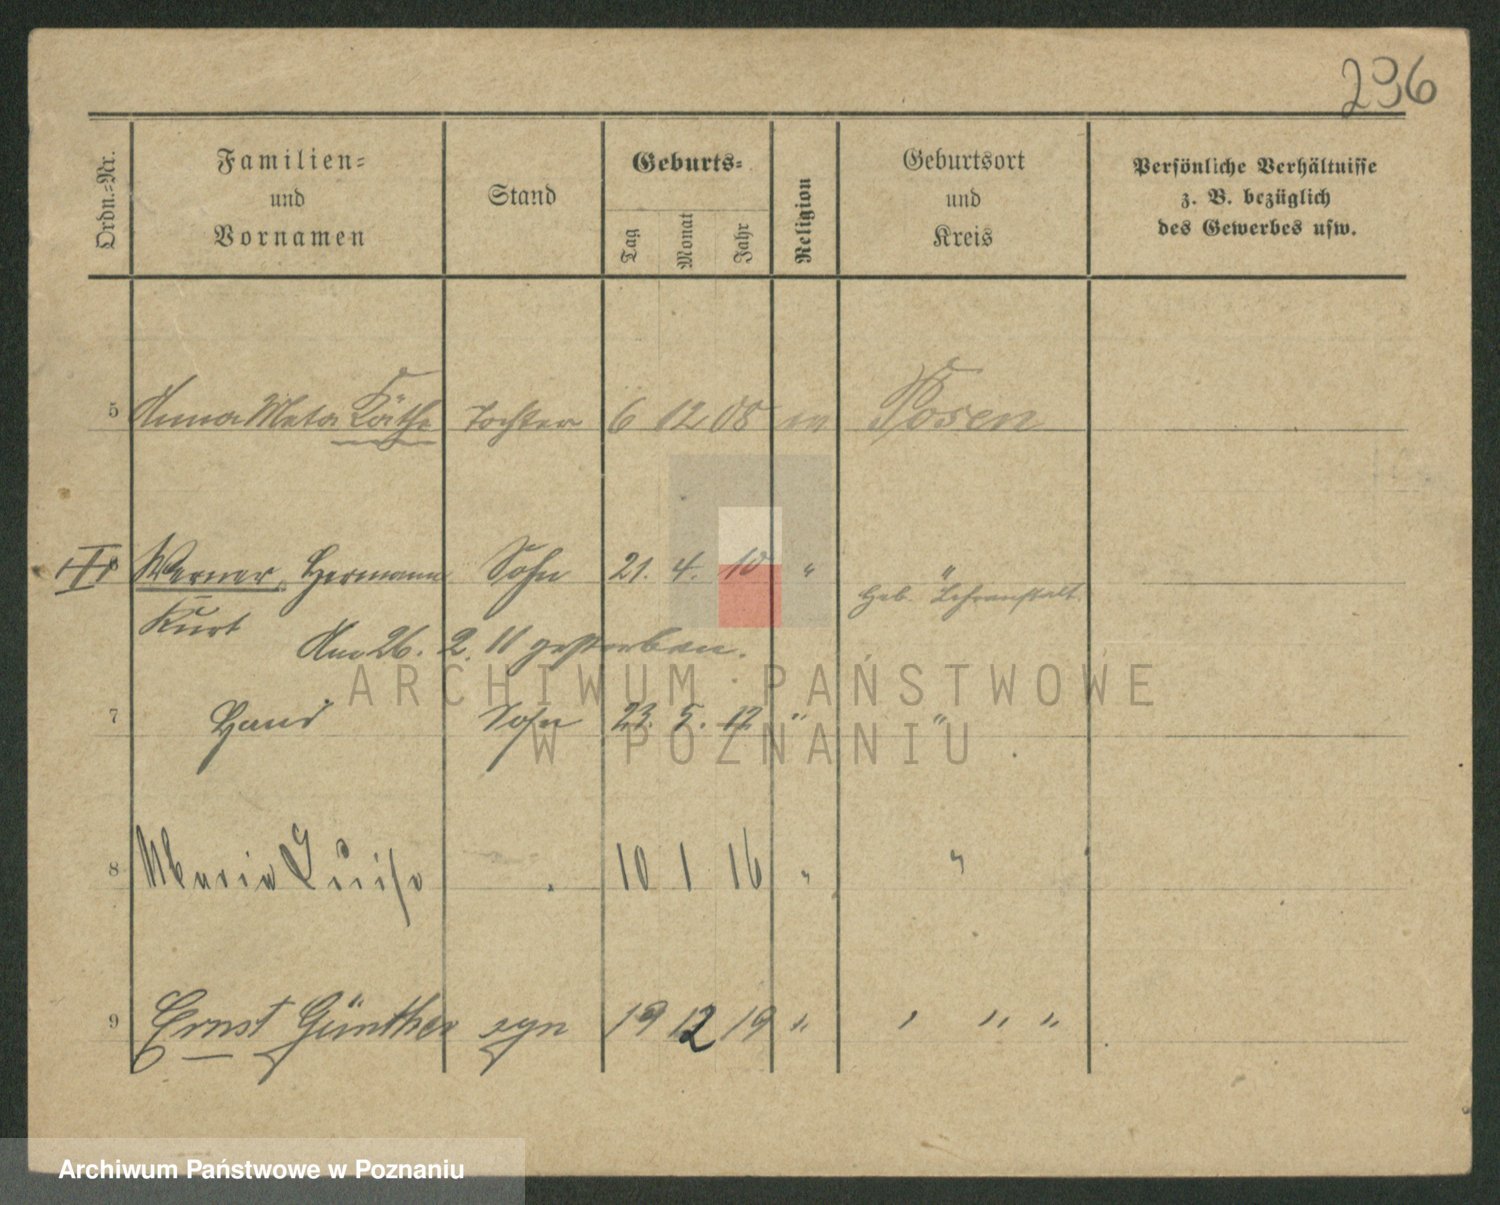 296
Ordn.-Nr.
Familien-
und
Vornamen
Stand
Geburts-
Tag
Monat
Jahr
Religion
Geburtsort
und
Kreis
Persönliche Verhältnisse
z. B. bezüglich
des Gewerbes usw.
5 Anna Meta Käthe Tochter 6 12 08 ev Posen
6 Werner, Hermann Sohn 21. 4. 10 " "
Kurt geb. Lehranstalt
Am 26. 2. 11 gestorben.
7 Hans Sohn 23. 5. 12 " "
8 Maria Luise 10 1 16 " "
9 Ernst Günther syn 19 12 19 " " " "
ARCHIWUM PAŃSTWOWE
W POZNANIU
Archiwum Państwowe w Poznaniu